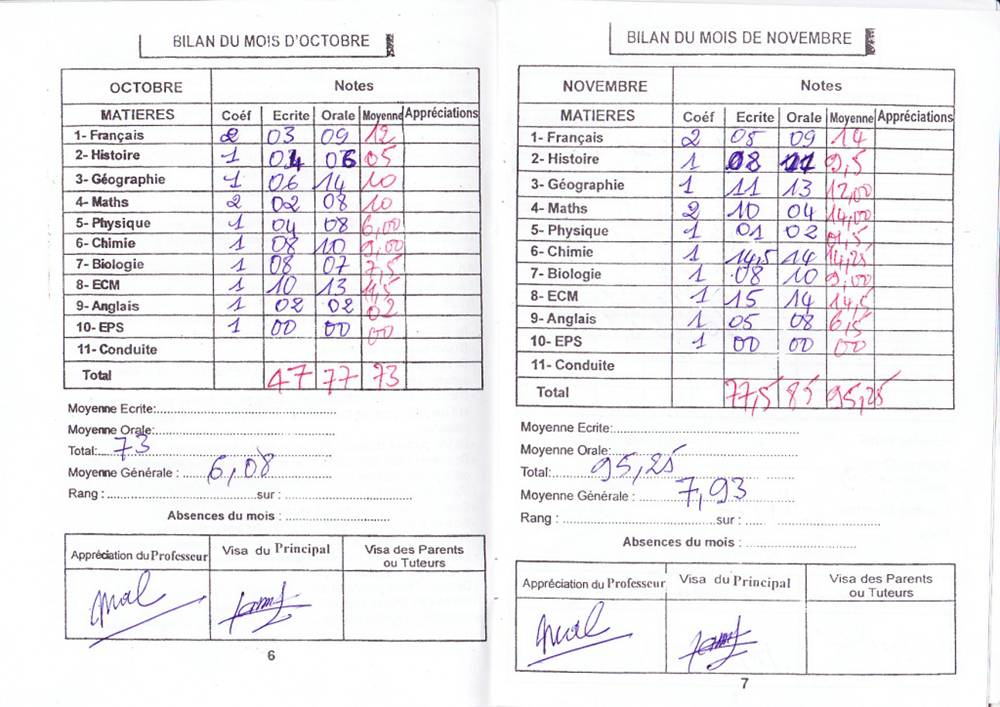 BILAN DU MOIS D'OCTOBRE
OCTOBRE Notes
MATIERES Coéf Ecrite Orale Moyenne Appréciations
1- Français 2 03 09 12
2- Histoire 1 04 06 05
3- Géographie 1 06 14 10
4- Maths 2 02 08 10
5- Physique 1 04 08 6,00
6- Chimie 1 08 10 9,00
7- Biologie 1 08 07 7,5
8- ECM 1 10 13 11,5
9- Anglais 1 02 02 02
10- EPS 1 00 00 00
11- Conduite
Total 47 77 73
Moyenne Ecrite:
Moyenne Orale:
Total: 73
Moyenne Générale : 6,08
Rang : sur :
Absences du mois :
Appréciation du Professeur Visa du Principal Visa des Parents
ou Tuteurs
Mal
6
BILAN DU MOIS DE NOVEMBRE
NOVEMBRE Notes
MATIERES Coéf Ecrite Orale Moyenne Appréciations
1- Français 2 05 09 14
2- Histoire 1 08 11 9,5
3- Géographie 1 11 13 12,00
4- Maths 2 10 04 14,00
5- Physique 1 01 02 01,5
6- Chimie 1 14,5 14 14,25
7- Biologie 1 08 10 9,00
8- ECM 1 15 14 14,5
9- Anglais 1 05 08 6,5
10- EPS 1 00 00 00
11- Conduite
Total 77,5 85 95,25
Moyenne Ecrite:
Moyenne Orale:
Total: 95,25
Moyenne Générale : 7,93
Rang : sur :
Absences du mois :
Appréciation du Professeur Visa du Principal Visa des Parents
ou Tuteurs
Mal
7